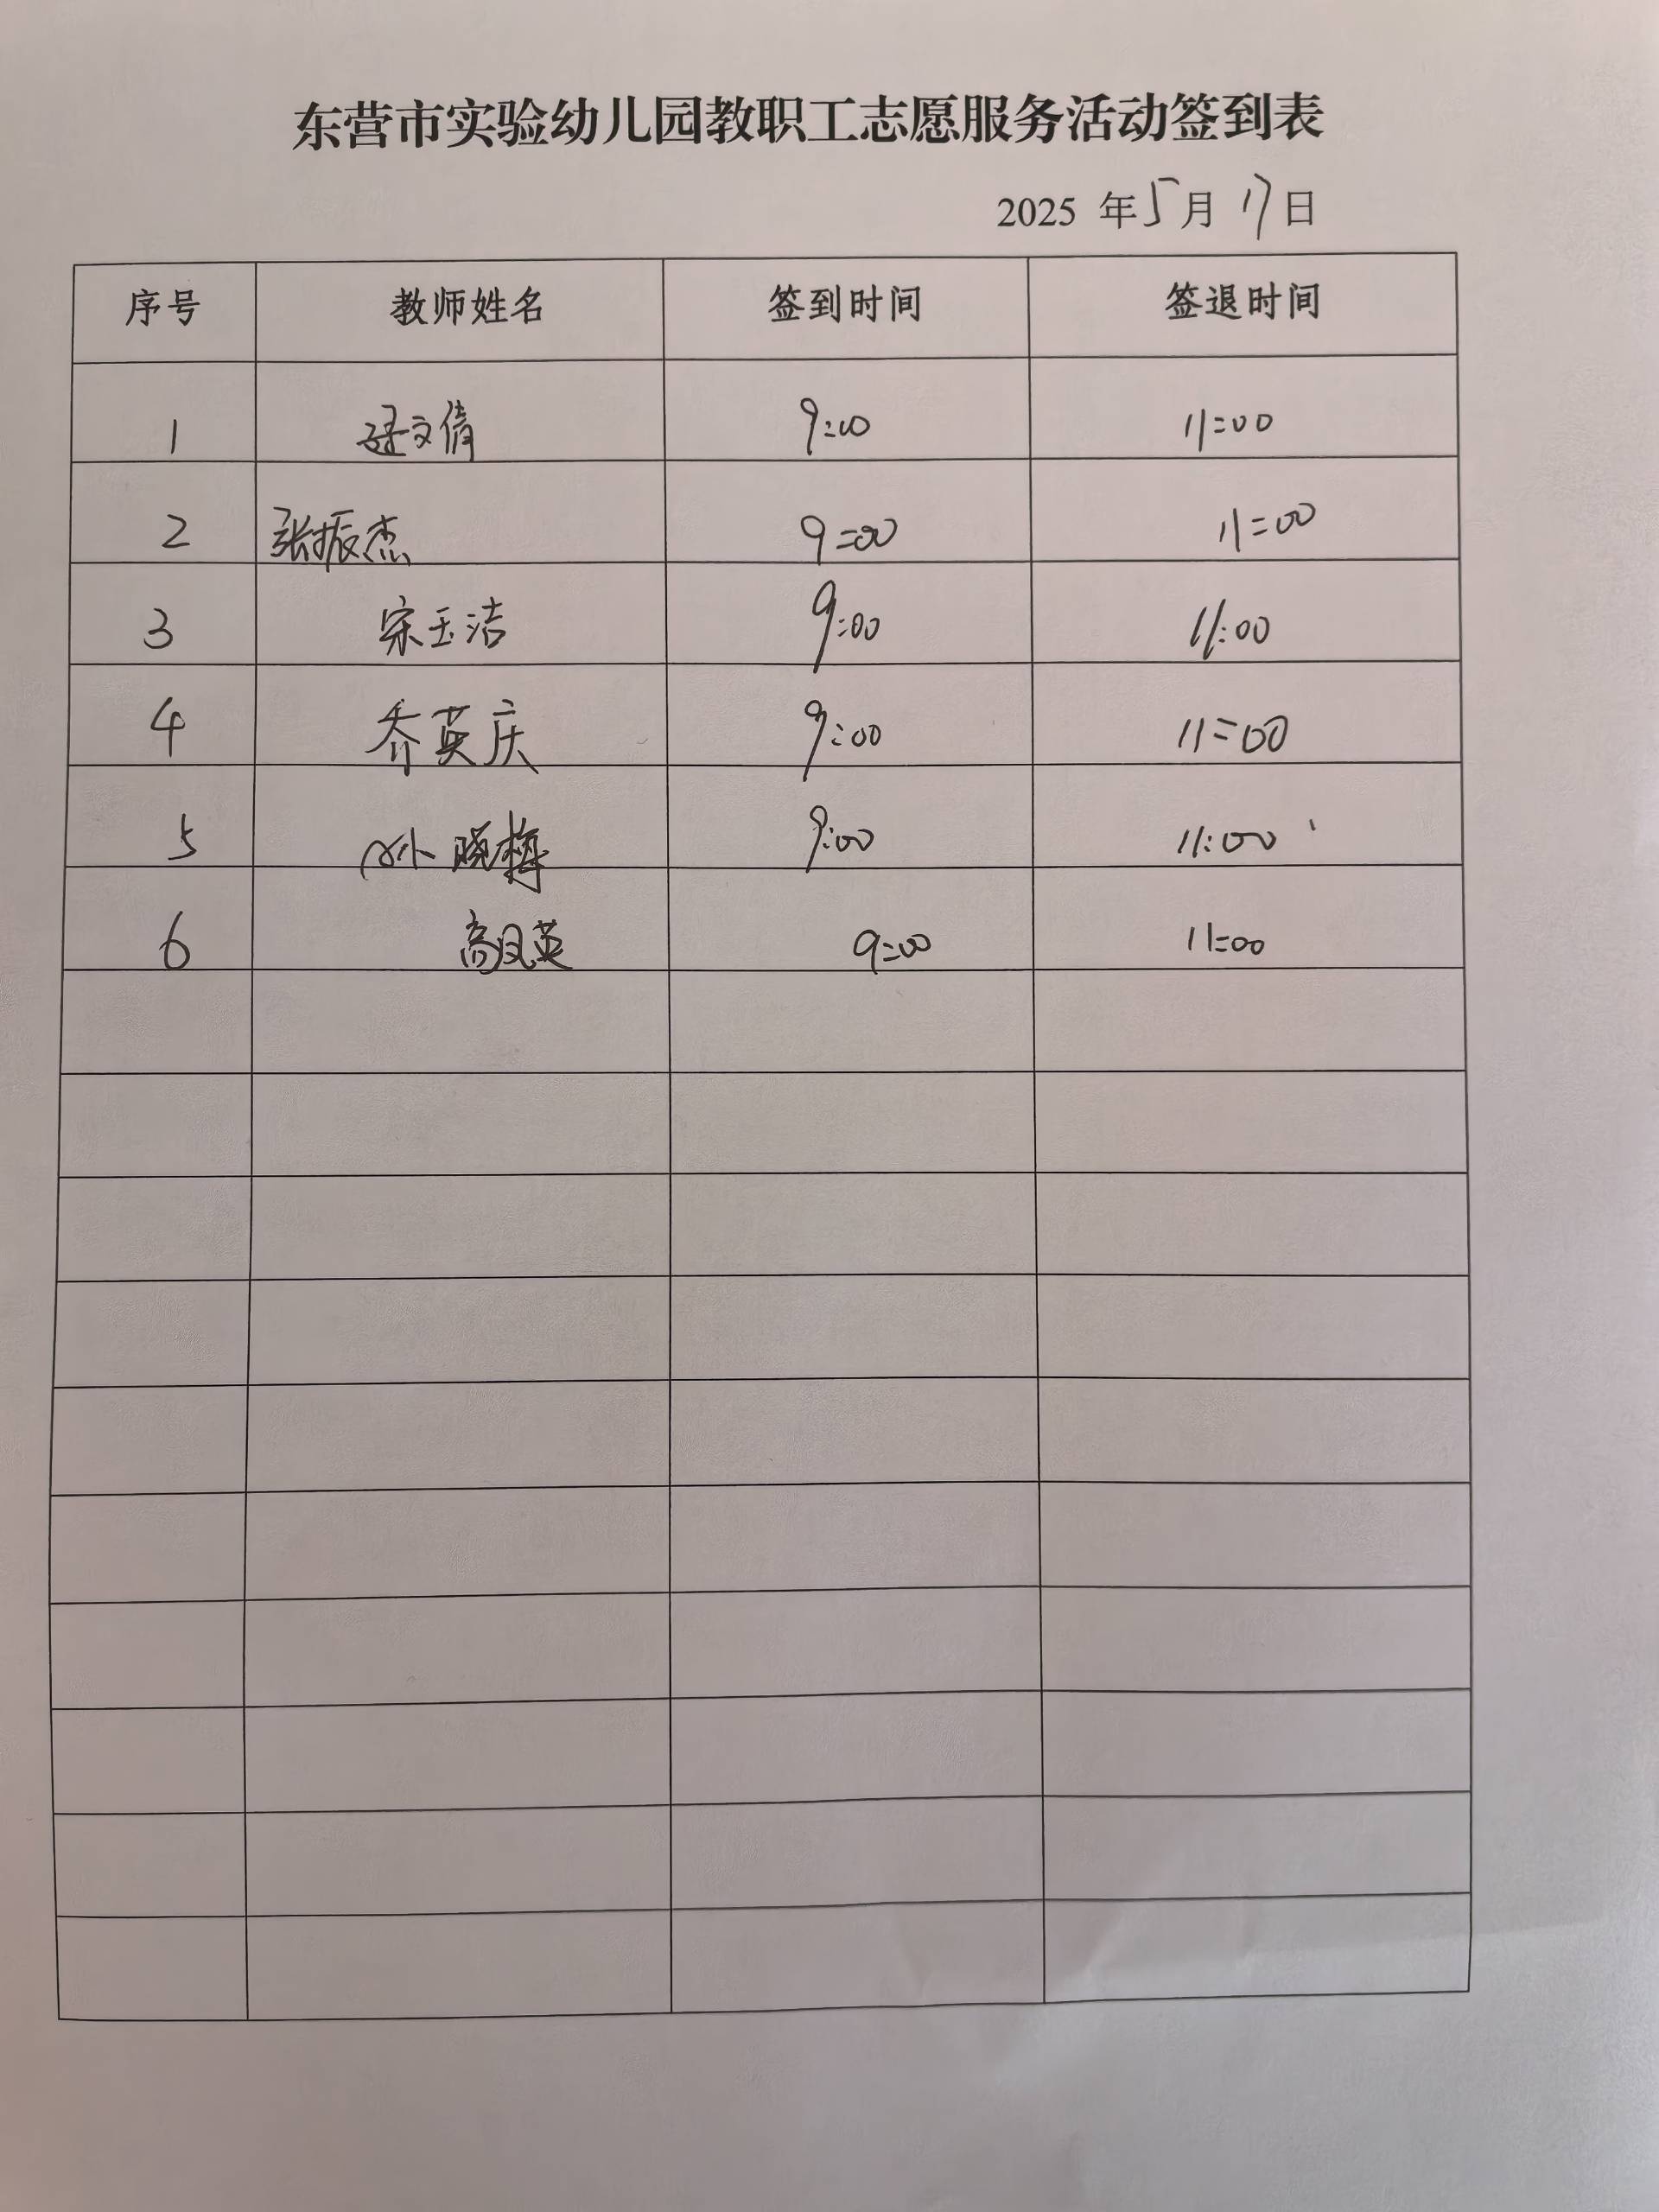 东营市实验幼儿园教职工志愿服务活动签到表
2025 年 5 月 17 日
序号 教师姓名 签到时间 签退时间
1 文倩 9:00 11:00
2 张振杰 9:00 11:00
3 宋玉洁 9:00 11:00
4 乔英庆 9:00 11:00
5 孙晓梅 9:00 11:00
6 高凤英 9:00 11:00